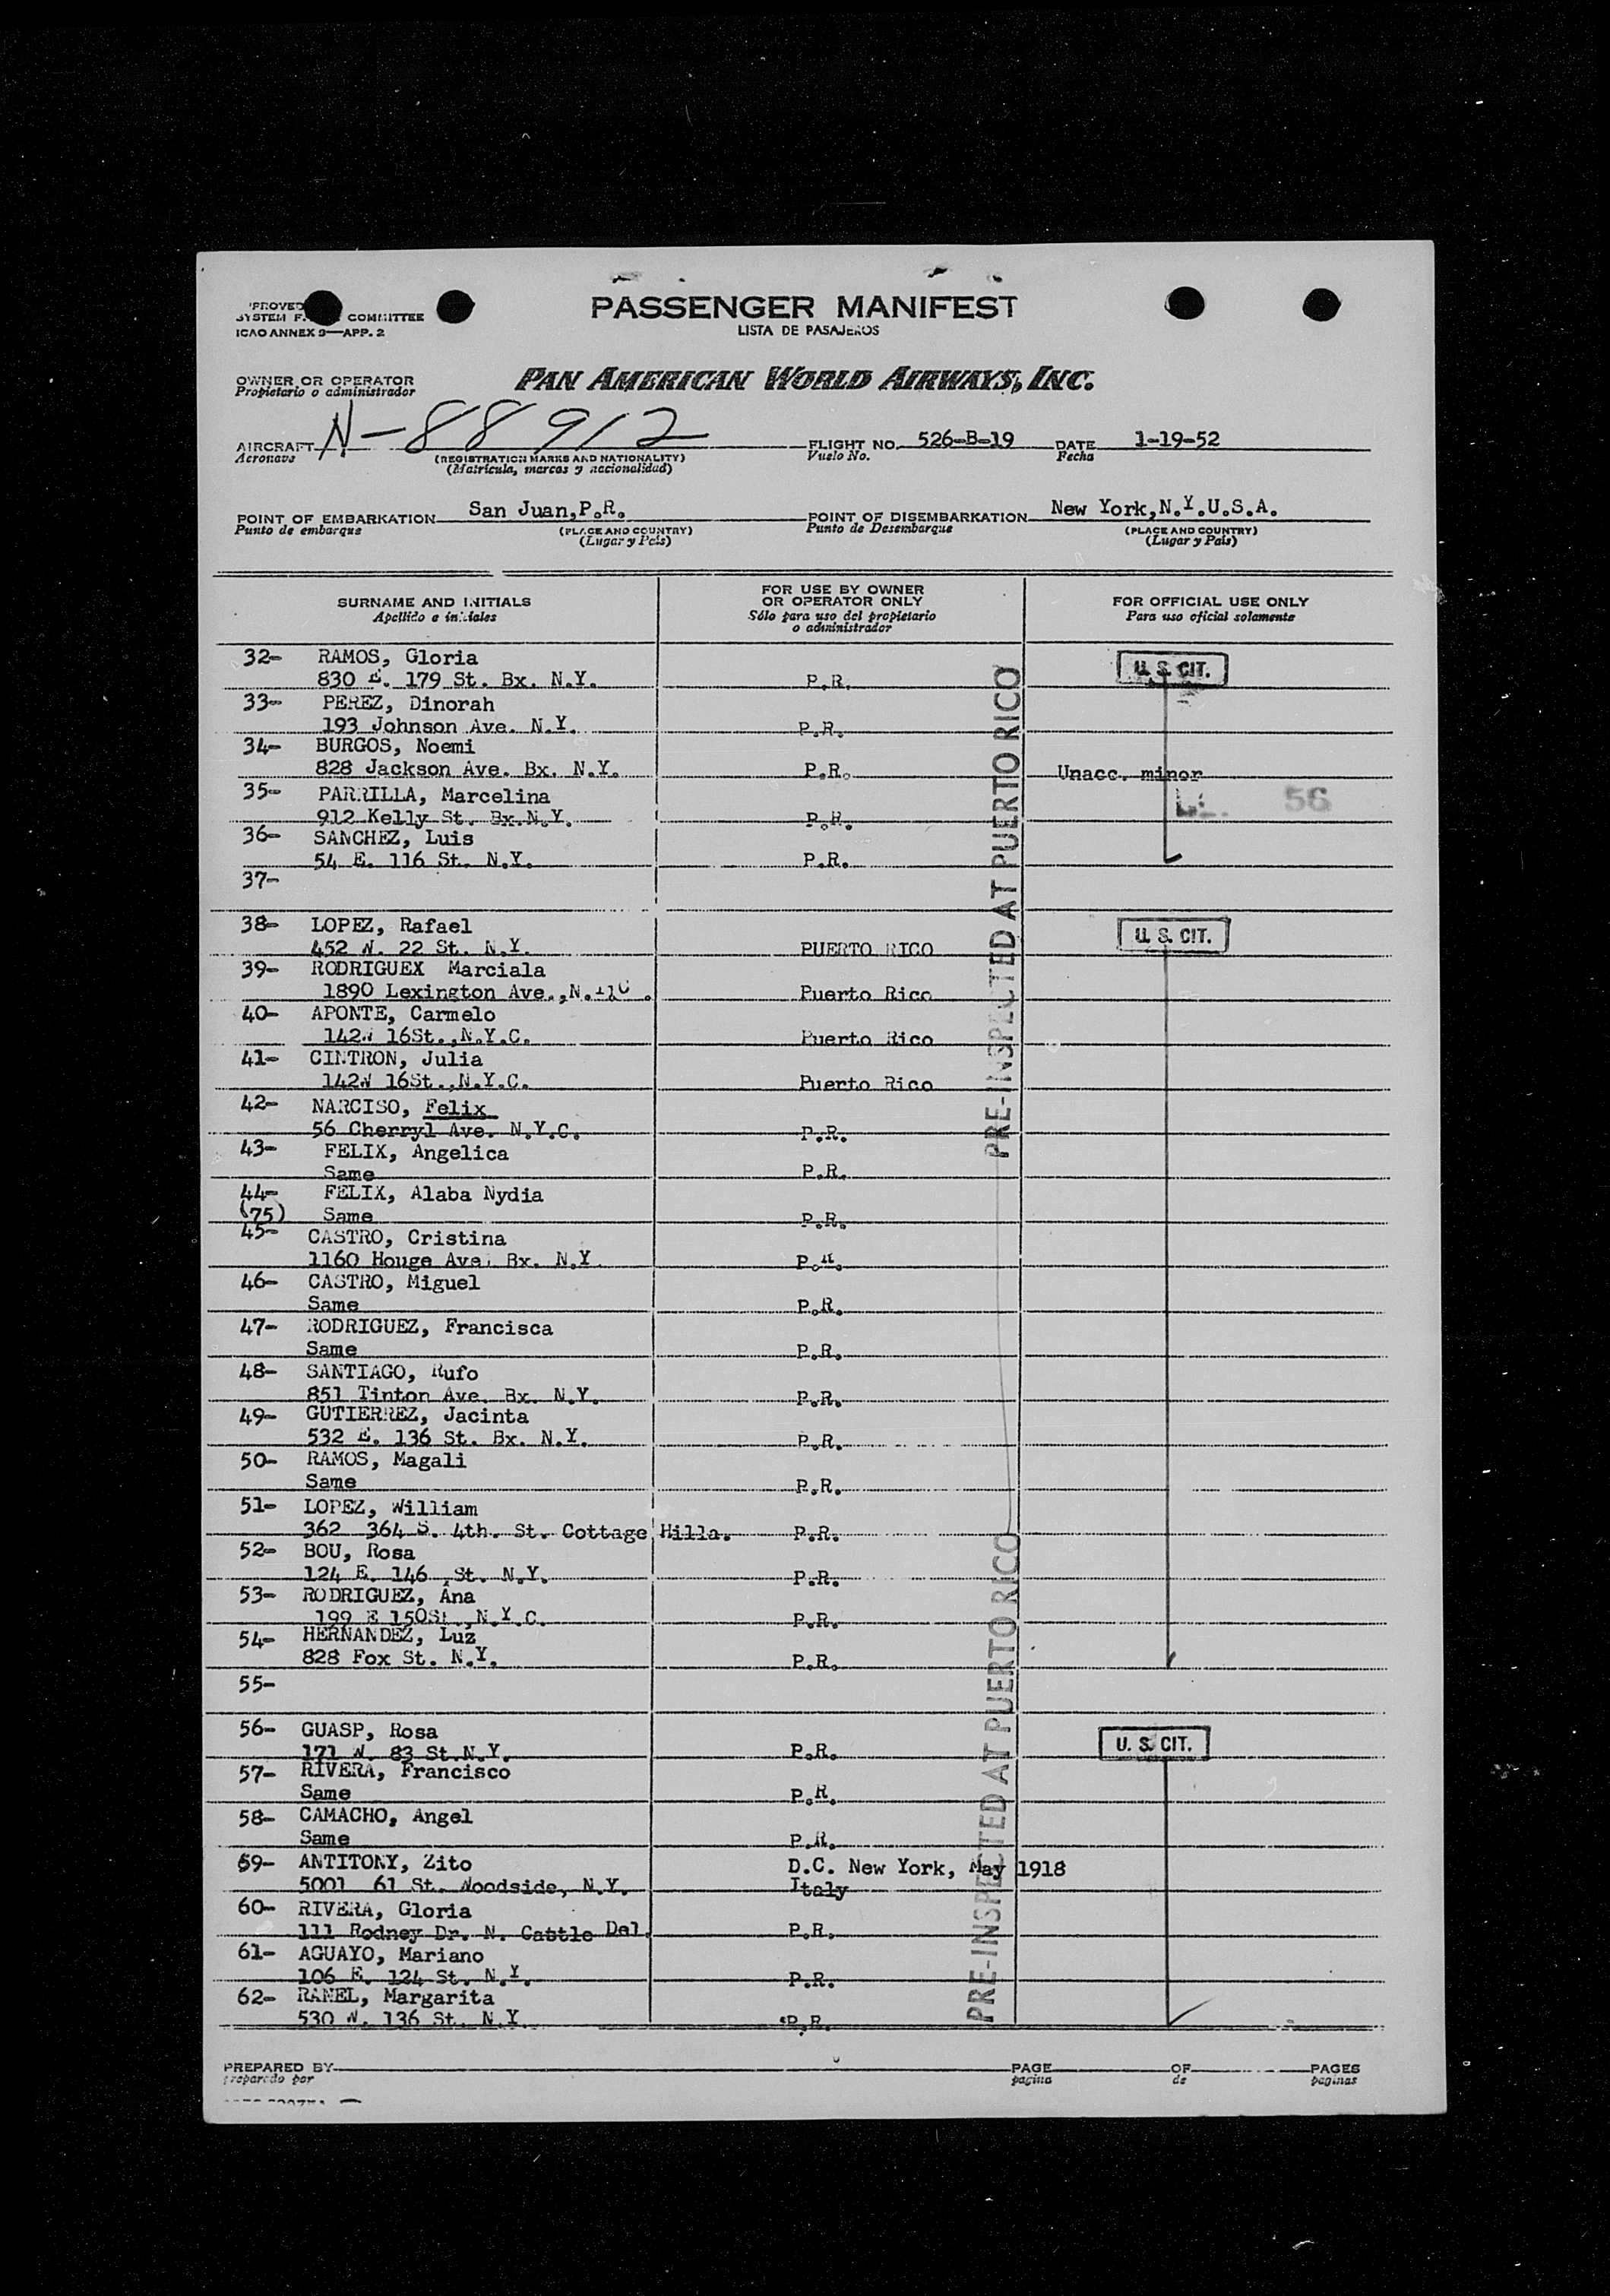 PASSENGER MANIFEST
LISTA DE PASAJEROS
COMMITTEE
ICAO ANNEX 9—APP. 2
OWNER OR OPERATOR
Propietario o administrador
PAN AMERICAN WORLD AIRWAYS, INC.
AIRCRAFT N-88912 FLIGHT NO. 526-B-19 DATE 1-19-52
Aeronave (REGISTRATION MARKS AND NATIONALITY) Vuelo No. Fecha
(Matrícula, marcas y nacionalidad)
POINT OF EMBARKATION San Juan,P.R. POINT OF DISEMBARKATION New York,N.Y.U.S.A.
Punto de embarque (PLACE AND COUNTRY) Punto de Desembarque (PLACE AND COUNTRY)
(Lugar y País) (Lugar y País)
SURNAME AND INITIALS
Apellido e iniciales
FOR USE BY OWNER
OR OPERATOR ONLY
Sólo para uso del propietario
o administrador
FOR OFFICIAL USE ONLY
Para uso oficial solamente
32- RAMOS, Gloria U. S. CIT.
830 E. 179 St. Bx. N.Y. P.R.
33- PEREZ, Dinorah
193 Johnson Ave. N.Y. P.R.
34- BURGOS, Noemi
828 Jackson Ave. Bx. N.Y. P.R. Unacc. minor
35- PARRILLA, Marcelina 56
912 Kelly St. Bx.N.Y. P.R.
36- SANCHEZ, Luis
54 E. 116 St. N.Y. P.R.
37-
38- LOPEZ, Rafael U. S. CIT.
452 W. 22 St. N.Y. PUERTO RICO
39- RODRIGUEX Marciala
1890 Lexington Ave.,N. Puerto Rico
40- APONTE, Carmelo
142W 16St.,N.Y.C. Puerto Rico
41- CINTRON, Julia
142W 16St.,N.Y.C. Puerto Rico
42- NARCISO, Felix
56 Cherryl Ave. N.Y.C. P.R.
43- FELIX, Angelica
Same P.R.
44- FELIX, Alaba Nydia
(75) Same P.R.
45- CASTRO, Cristina
1160 Houge Ave. Bx. N.Y. P.R.
46- CASTRO, Miguel
Same P.R.
47- RODRIGUEZ, Francisca
Same P.R.
48- SANTIAGO, Rufo
851 Tinton Ave. Bx. N.Y. P.R.
49- GUTIERREZ, Jacinta
532 E. 136 St. Bx. N.Y. P.R.
50- RAMOS, Magali
Same P.R.
51- LOPEZ, William
362 364 S. 4th. St. Cottage Hilla. P.R.
52- BOU, Rosa
124 E. 146 St. N.Y. P.R.
53- RODRIGUEZ, Ana
199 E 150St.,N.Y.C. P.R.
54- HERNANDEZ, Luz
828 Fox St. N.Y. P.R.
55-
56- GUASP, Rosa U. S. CIT.
171 W. 83 St.N.Y. P.R.
57- RIVERA, Francisco
Same P.R.
58- CAMACHO, Angel
Same P.R.
59- ANTITONY, Zito D.C. New York, May 1918
5001 61 St. Woodside, N.Y. Italy
60- RIVERA, Gloria
111 Rodney Dr. N. Cattle Del. P.R.
61- AGUAYO, Mariano
106 E. 124 St. N.Y. P.R.
62- RANEL, Margarita
530 W. 136 St. N.Y. P.R.
PRE-INSPECTED AT PUERTO RICO
PRE-INSPECTED AT PUERTO RICO
PREPARED BY PAGE OF PAGES
preparado por pagina de paginas